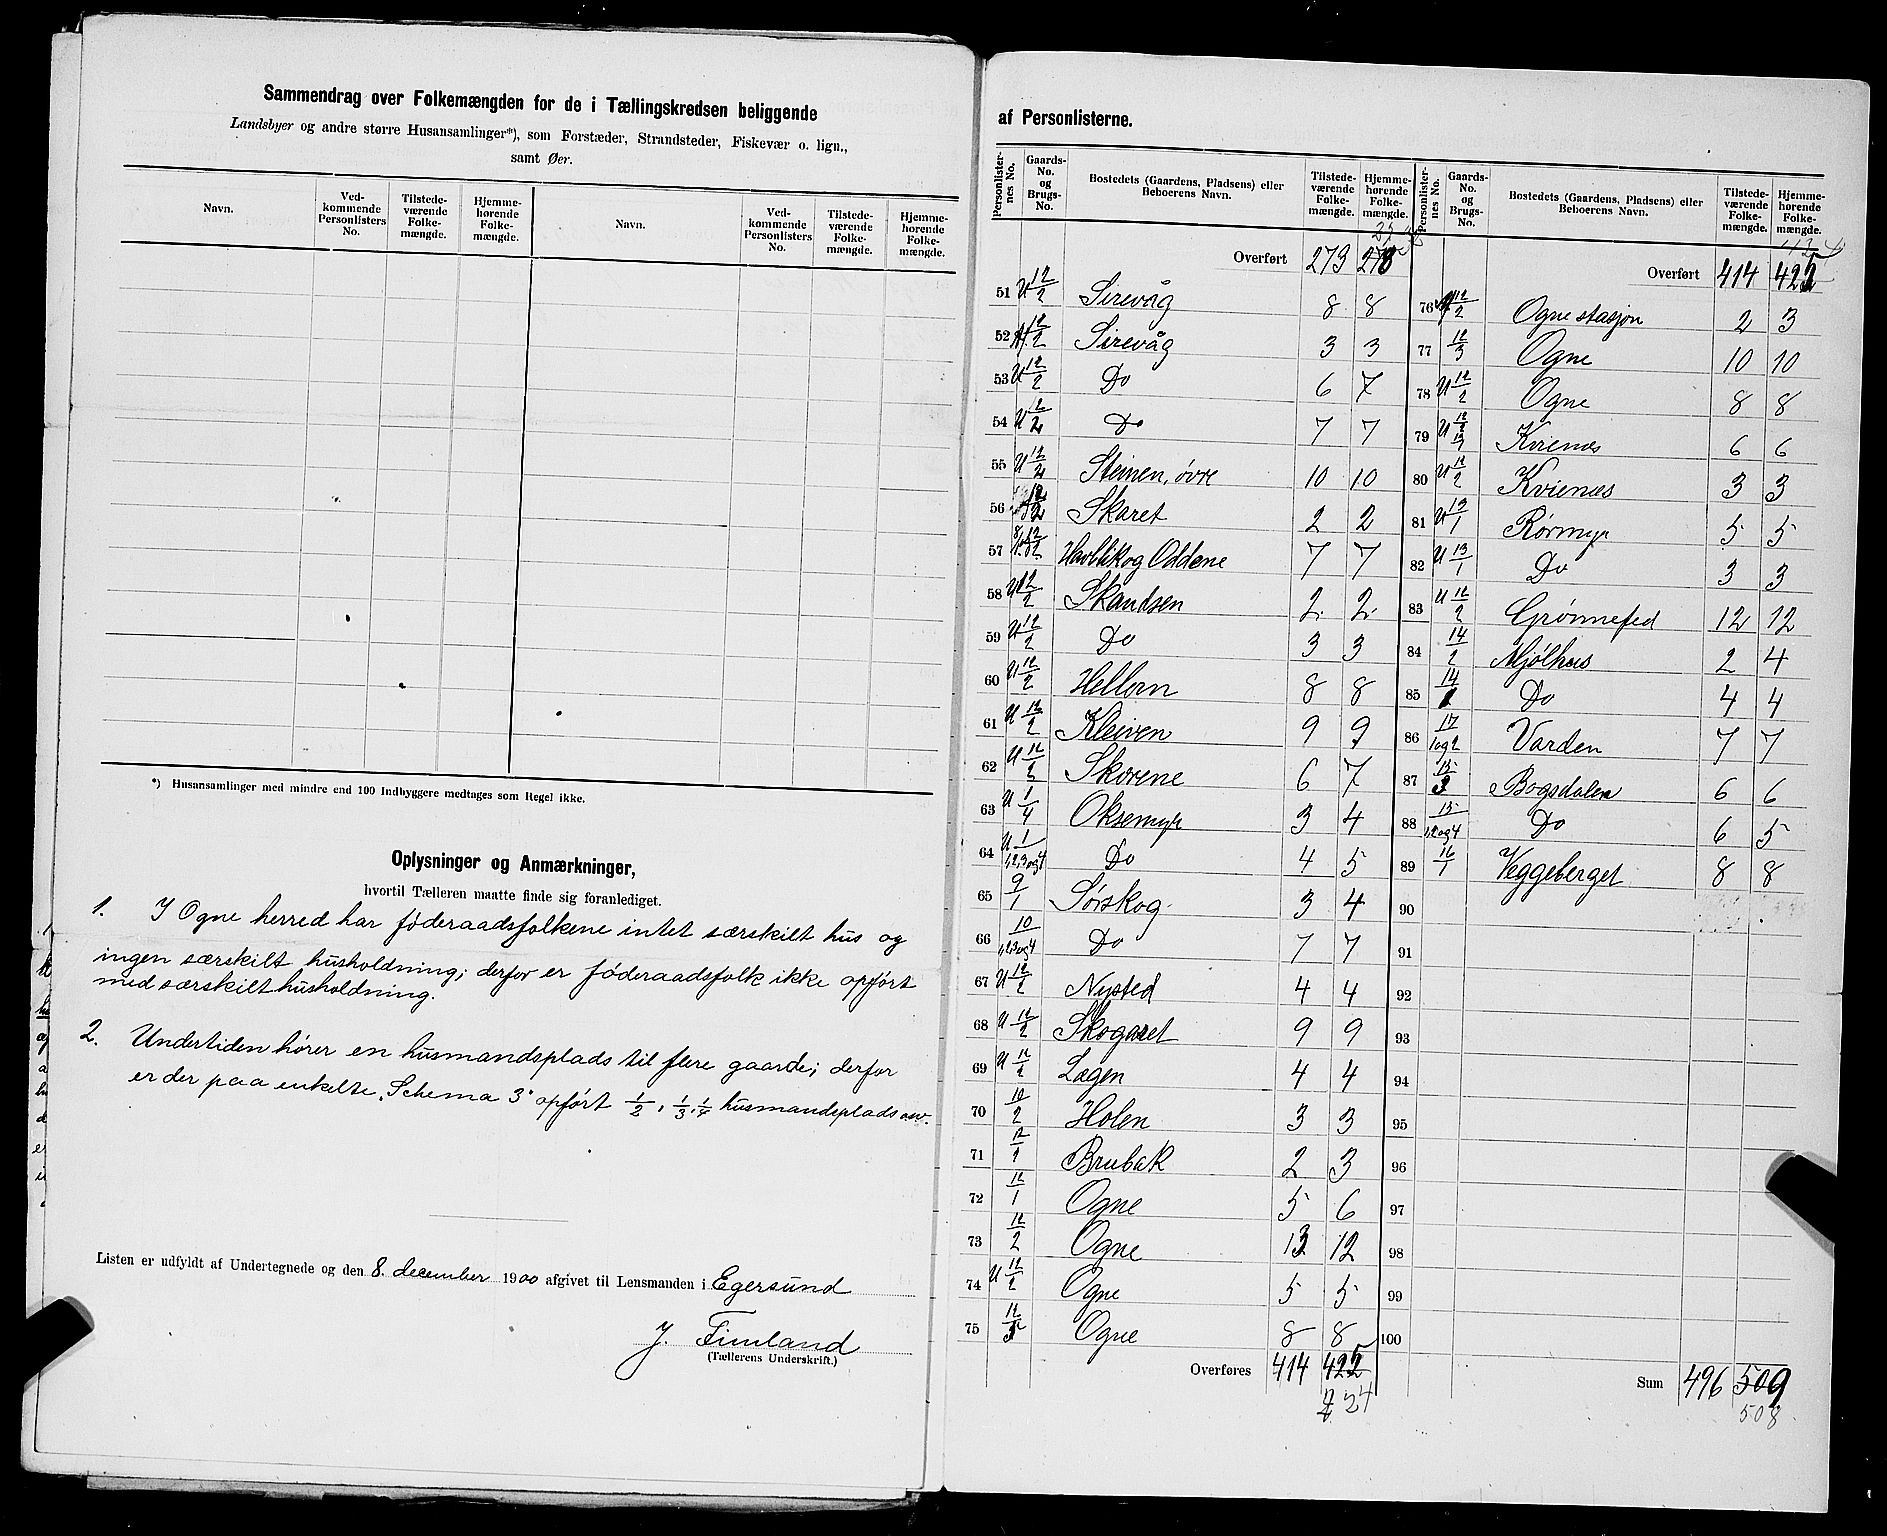 Sammendrag over Folkemængden for de i Tællingskredsen beliggende
Landsbyer og andre større Husansamlinger*), som Forstæder, Strandsteder, Fiskevær o. lign.,
samt Øer.
Navn. Ved-kommende Personlisters No. Tilstede-værende Folke-mængde. Hjemme-hørende Folke-mængde. Navn. Ved-kommende Personlisters No. Tilstede-værende Folke-mængde. Hjemme-hørende Folke-mængde.
*) Husansamlinger med mindre end 100 Indbyggere medtages som Regel ikke.
Oplysninger og Anmærkninger,
hvortil Tælleren maatte finde sig foranlediget.
1. I Ogne herred har föderaadsfolkene intet særskilt hus og
ingen særskilt husholdning; derfor er föderaadsfolk ikke opført
med særskilt husholdning.
2. Undertiden hører en husmandsplads til flere gaarde; derfor
er der paa enkelte "Schema 3" opført 1/2, 1/3, 1/4 husmandsplads osv.
Listen er udfyldt af Undertegnede og den 8. december 1900 afgivet til Lensmanden i Egersund
J. Fimland
(Tællerens Underskrift.)
af Personlisterne.
Personlister-nes No. Gaards-No. og Brugs-No. Bostedets (Gaardens, Pladsens) eller Beboerens Navn. Tilstede-værende Folke-mængde. Hjemme-hørende Folke-mængde.
Overført 273
51 U 12/2 Sirevåg 8 8
52 12/2 Sirevåg 3 3
53 U 12/2 Do 6 7
54 U 12/2 Do 7 7
55 U 12/2 Steinen, övre 10 10
56 12/2 Skaret 2 2
57 12/2 Havblik og Oddene 7 7
58 U 12/2 Skandsen 2 2
59 U 12/2 Do 3 3
60 U 12/2 Hellorn 8 8
61 U 12/2 Kleiven 9 9
62 U 12/3 Skorene 6 7
63 U 1/4 Oksemyr 3 4
64 U 1/1,2,3 og 4 Do 4 5
65 9/1 Sørskog 3 4
66 10/1,2,3 og 4 Do 7 7
67 U 12/2 Nysted 4 4
68 U 12/2 Skogaret 9 9
69 U 12/2 Lægen 4 4
70 10/2 Holen 3 3
71 12/2 Brubak 2 3
72 12/1 Ogne 5 6
73 12/2 Ogne 13 12
74 U 12/2 Ogne 5 5
75 12/3 Ogne 8 8
Overføres 414 425
424
Personlister-nes No. Gaards-No. og Brugs-No. Bostedets (Gaardens, Pladsens) eller Beboerens Navn. Tilstede-værende Folke-mængde. Hjemme-hørende Folke-mængde.
Overført 414 425
76 12/2 Ogne stasjon 2 3
77 12/3 Ogne 10 10
78 U 12/2 Ogne 8 8
79 U Kvienes 6 6
80 U 12/2 Kvienes 3 3
81 U 13/1 Rørmyr 5 5
82 U 13/1 Do 3 3
83 U 12/2 Grönnefed 12 12
84 14/2 Mjølhus 2 4
85 14/1 Do 4 4
86 17/1 og 2 Varden 7 7
87 15/3 Bogsdalen 6 6
88 15/1,2 og 4 Do 6 5
89 16/1 Veggeberget 8 8
90
91
92
93
94
95
96
97
98
99
100
Sum 496 509
508